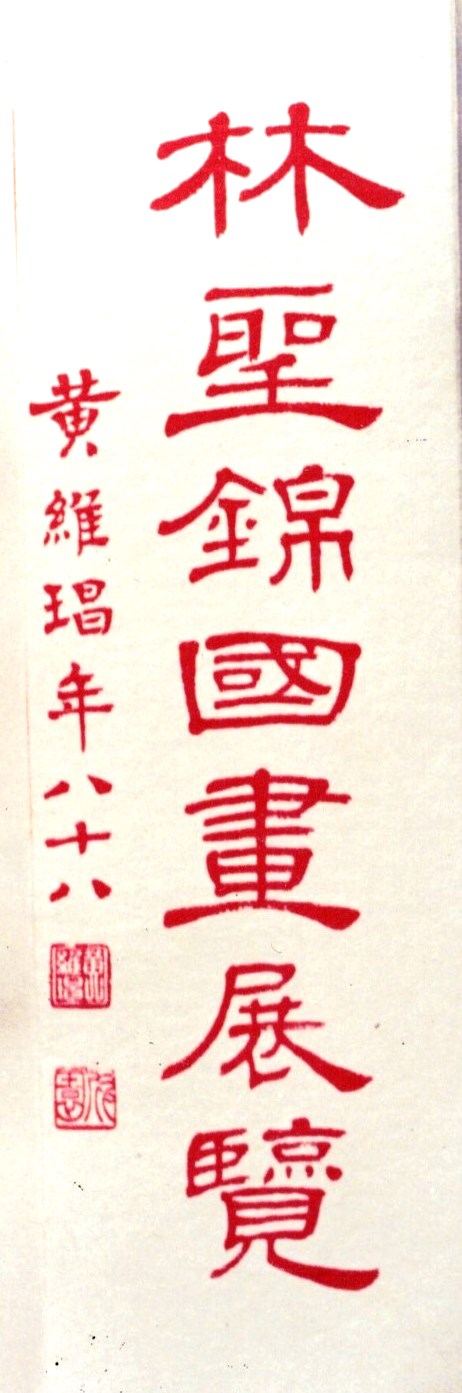 林聖錦國畫展覽
黃維琩年八十八